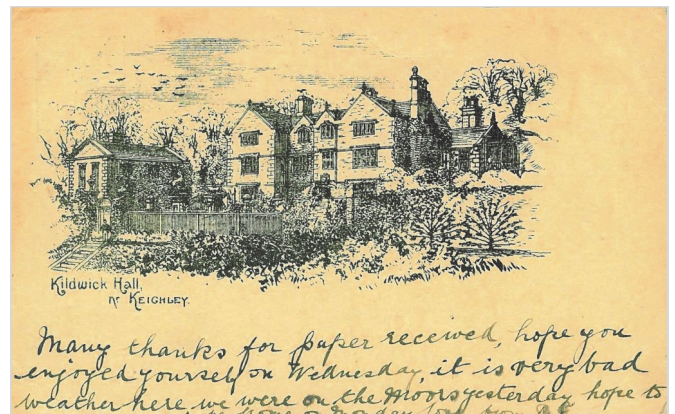 Kildwick Hall,
Nr KEIGHLEY.
Many thanks for paper received, hope you
enjoyed yourself on Wednesday, it is very bad
weather here, we were on the moors yesterday hope to
be home on Monday